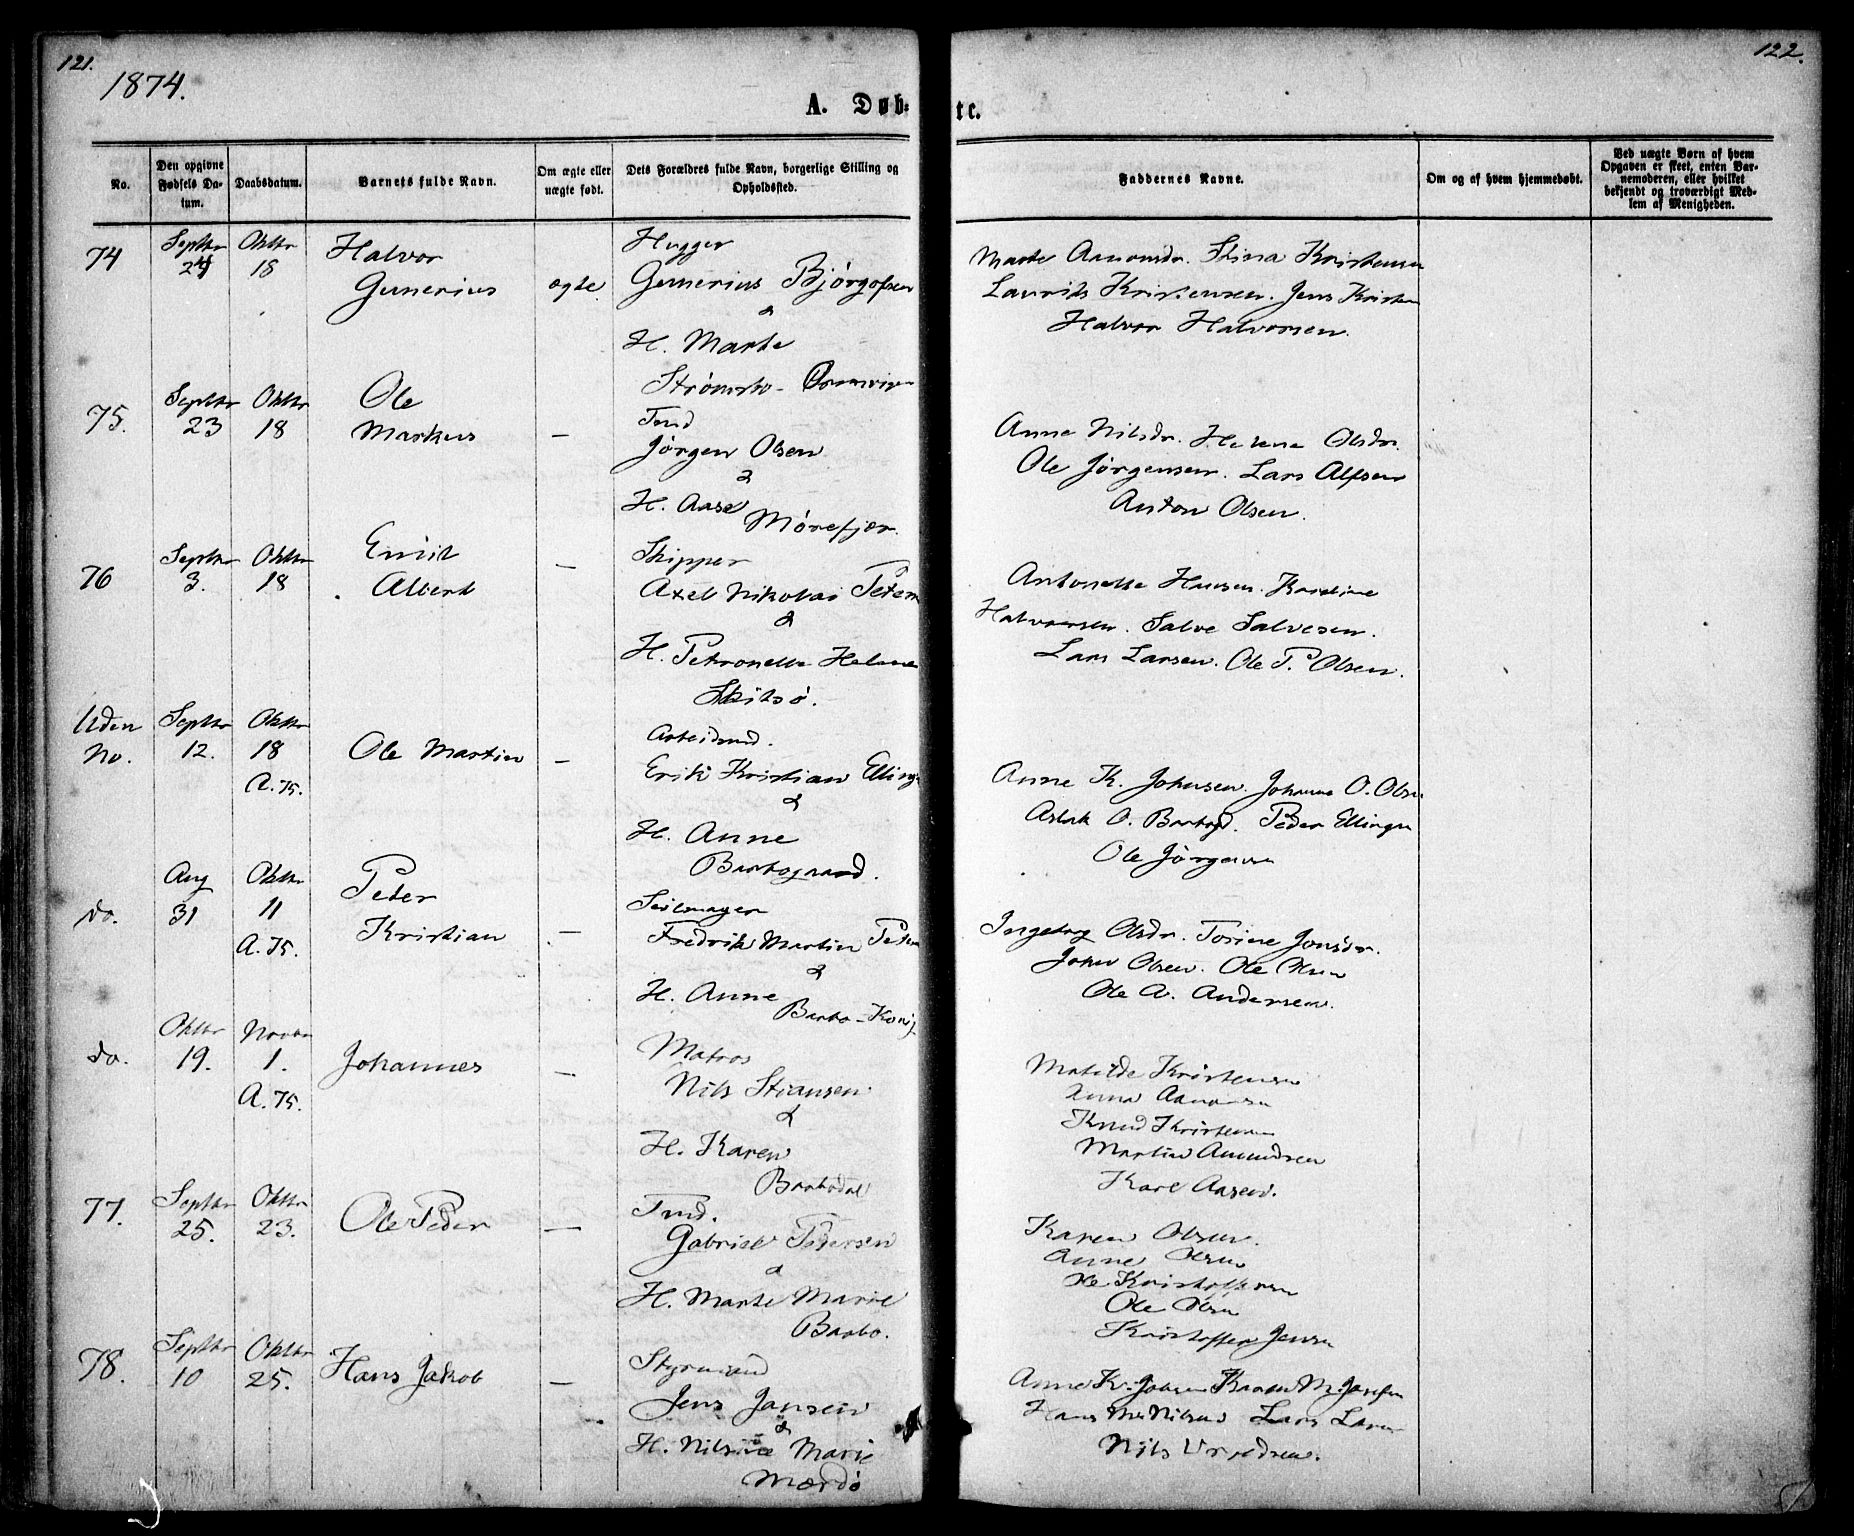 121.
122.
1874.
A. Døb- te.
No.
Den opgivne Fødsels Da- tum.
Daabsdatum.
Barnets fulde Navn.
Om ægte eller uægte født.
Dets Forældres fulde Navn, borgerlige Stilling og Opholdssted.
Faddernes Navne.
Om og af hvem hjemmedøbt.
Ved uægte Børn af hvem Opgaven er skeet, enten Bar- nemoderen, eller hvilket bekjendt og troværdigt Med- lem af Menigheden.
74
Septbr 24
Oktbr 18
Halvor
Gunerius
ægte
Hugger
Gunerius Bjørgofsen
&
H. Marte
Strømsbo-
Marte Aanonsdr. Stina Kristensen
Laurits Kristensen. Jens Kristen
Halvor Halvorsen.
75.
Septbr 23
Oktbr 18
Ole
Markus
—
Tmd
Jørgen Olsen
&
H. Aase
Mørefjær.
Anne Nilsdr. Helene Olsdr.
Ole Jørgensen. Lars Alfsen
Anton Olsen.
76
Septbr 3.
Oktbr 18
Emil
Albert
—
Skipper
Axel Nikolai Petersen
&
H. Petronelle Helene
Skilsø.
Antonette Hansen. Karoline
Halvorsen. Salve Salvesen.
Lars Larsen. Ole P. Olsen.
Uden No.
Septbr 12.
Oktbr 18
A. 75.
Ole Martin
—
Arbeidsmd.
Erik Kristian Ellings
&
H. Anne
Barbogaard.
Anne K. Johnsen. Johanne O. Olsen
Aslak O. Barbogd. Peder Ellings
Ole Jørgensen
do.
Aug 31
Oktbr 11
A. 75.
Peter
Kristian
—
Seilmager
Fredrik Martin Peters
&
H. Anne
Barbo-
Ingeborg Olsdr. Torine Jonsdr.
John Olsen. Ole Olsen
Ole A. Andersen.
do.
Oktbr 19.
Novbr 1.
A. 75.
Johannes
—
Matros
Nils Stiansen
&
H. Karen
Barbodal
Matilde Kristensen
Anna Aanonsen
Knud Kristensen
Martin Amundsen
Karl Aasen.
77.
Septbr 25.
Oktbr 23.
Ole Peder
—
Tmd.
Gabriel Pedersen
&
H. Marte Marie
Barbo.
Karen Olsen.
Anne Olsen
Ole Kristoffersen
Ole Olsen
Kristoffer Jensen
78.
Septbr 10
Oktbr 25.
Hans Jakob
—
Styrmand
Jens Jansen
&
H. Nilsine Marie
Mærdø
Anne K. Karen M. Josefsen
Hans Nilsen Lars Larsen
Nils